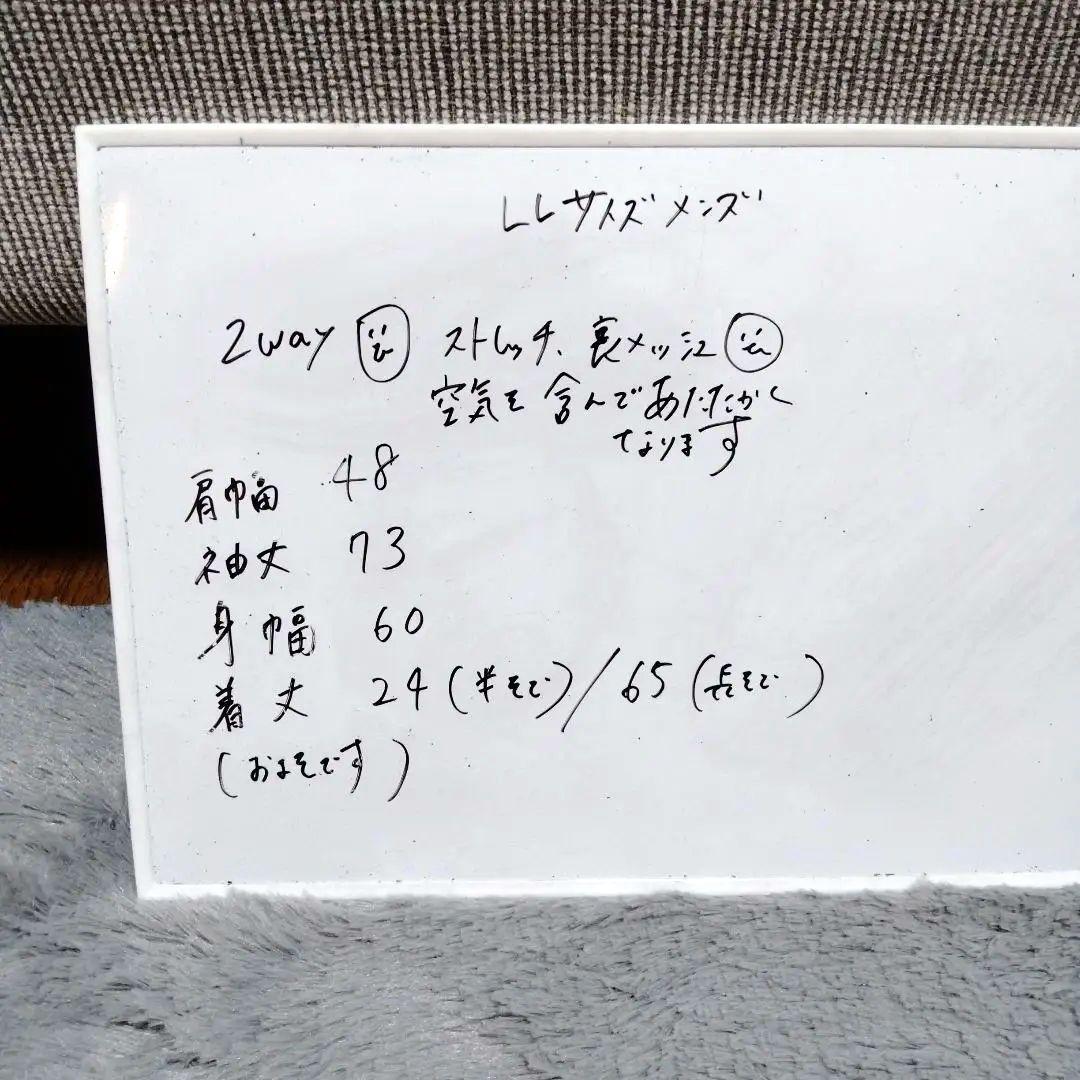 LLサイズメンズ
2way ストレッチ、裏メッシュ
空気を含んであたたかく
なります
肩巾畐 48
袖丈 73
身幅 60
着丈 24(半そで)/65(長そで)
(およそです)